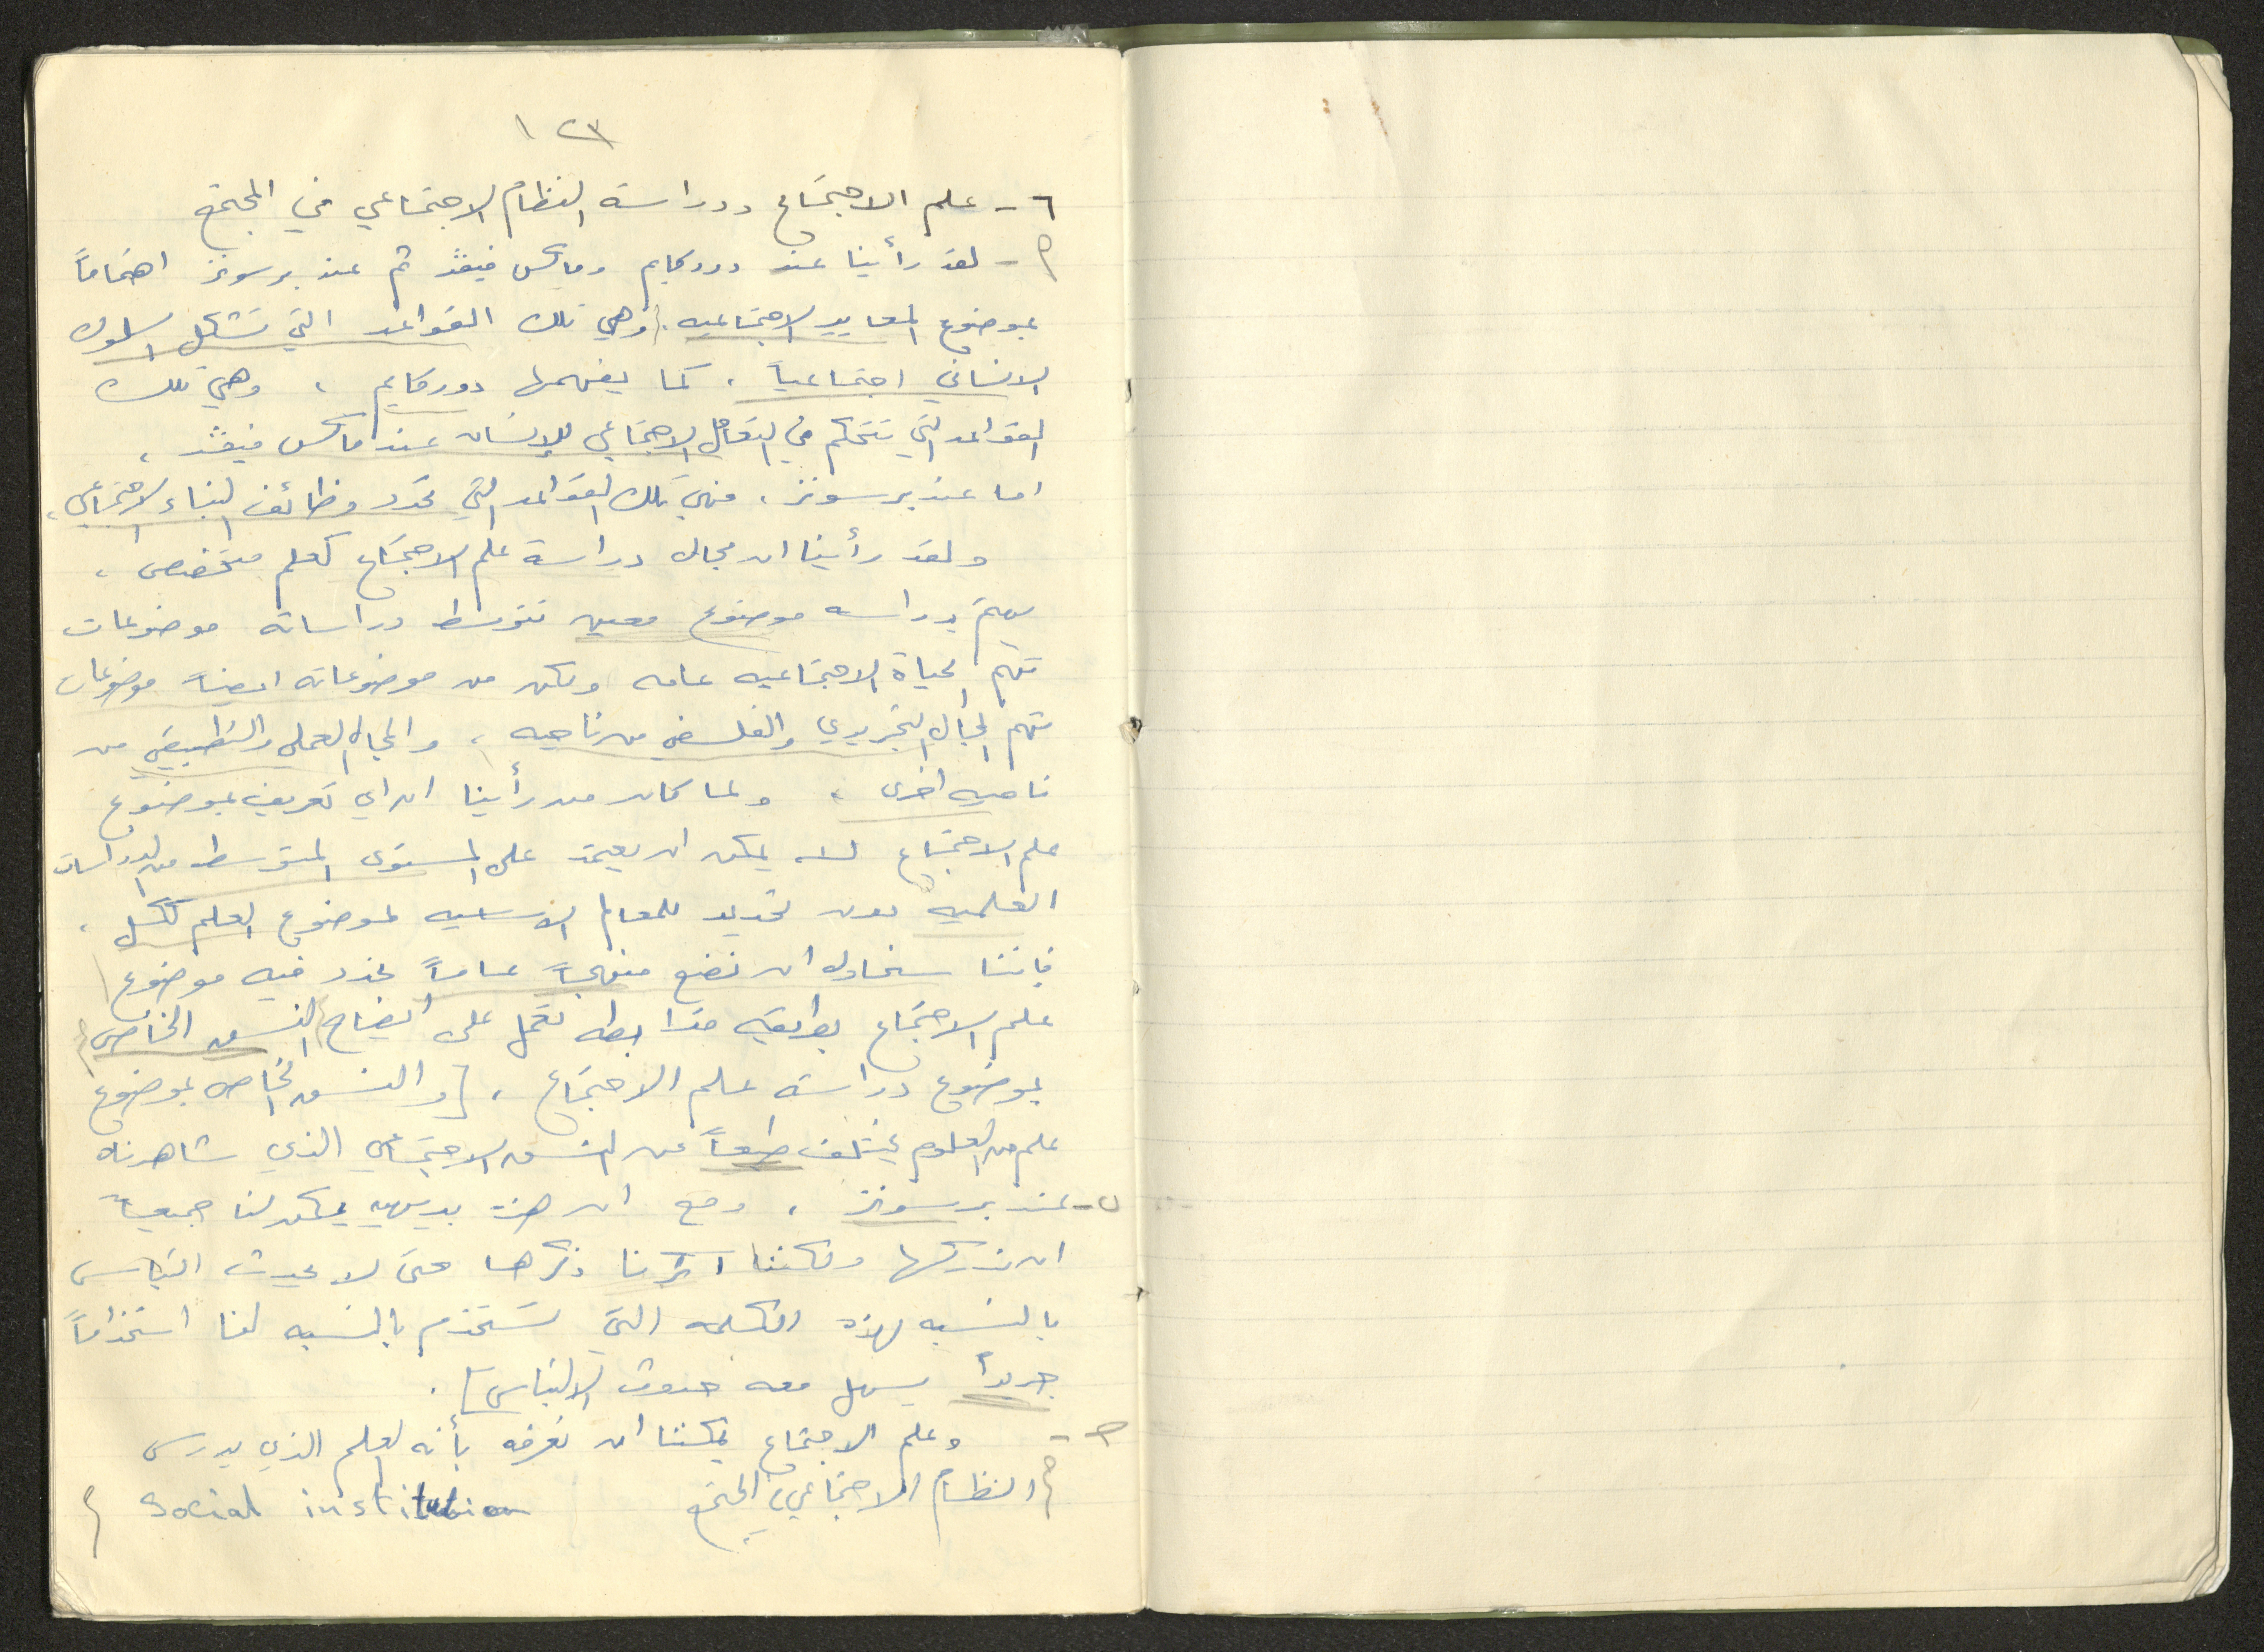 ١٢٣
٦- علم الاجتماع ودراسة النظام الاجتماعي في المجتمع
م - لقد رأينا عند دوركايم وماكس فيفر ثم عند برسونز اهتماماً
بموضوع المعايير الاجتماعيه. (وهي تلك القواعد التي تشكل السلوك
الانساني اجتماعياً، كما يفهمها دوركايم، وهي تلك
القواعد التي تتحكم في التفاعل الاجتماعي للإنسان عند ماكس فيفر،
اما عند برسونز، فهي تلك القواعد التي تحدد وظائف البناء الاجتماعي،
ولقد رأينا ان مجال دراسة علم الاجتماع كعلم متخصص،
يهتم بدراسه موضوع معين تتوسط دراساته موضوعات
تهم الحياة الاجتماعيه عامه ولكن من موضوعاته ايضاً موضوعات
تهم المجال التجريدي والفلسفي من ناحيه، والمجال العملي والتطبيقي من
ناحيه اخرى، ولما كان من رأينا ان اي تعريف بموضوع
علم الاجتماع لا يمكن ان يعتمد على المستوى المتوسط من الدراسات
العلميه دون تحديد للمعالم الاساسيه لموضوع العلم ككل،
فاننا سنحاول ان نضع منهجاً عاماً نحدد فيه موضوع
علم الاجتماع بطريقه مترابطه تعمل على ايضاح النسق الخاص
بموضوع دراسة علم الاجتماع، [والنسق الخاص بموضوع
علم من العلوم يختلف طبعاً عن النسق الاجتماعي الذي شاهدناه
عند برسونز، ومع ان هذه بديهيه يمكن لنا جميعاً
ان ندركها ولكننا آثرنا ذكرها حتى لا يحدث التباس
بالنسبه لهذه الكلمه التي تستخدم بالنسبه لنا استخداماً
جديداً يسهل معه حدوث الالتباس].
وعلم الاجتماع يمكننا ان نعرفه بأنه العلم الذي يدرس
النظام الاجتماعي في المجتمع Social institution